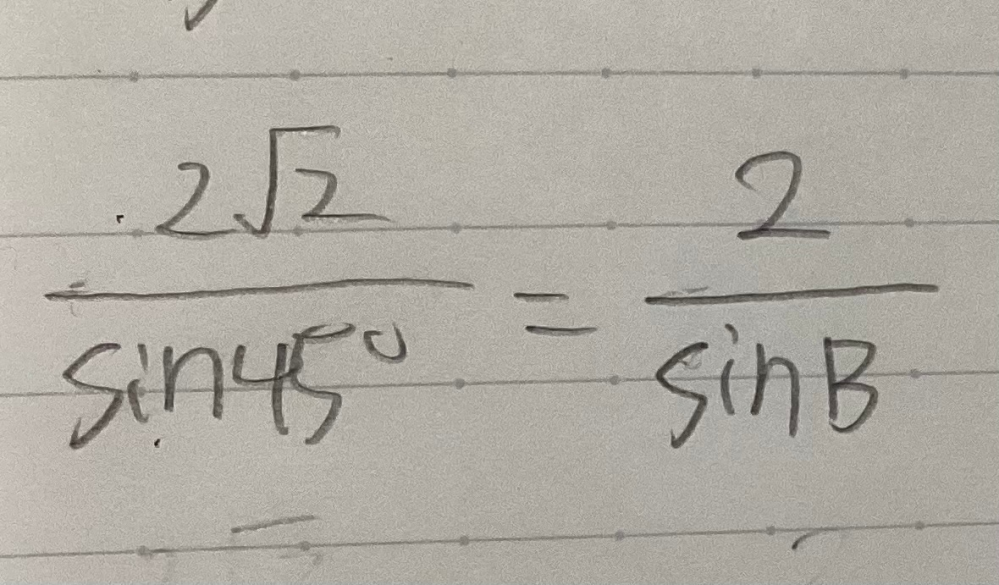 2√2/sin45° = 2/sinB